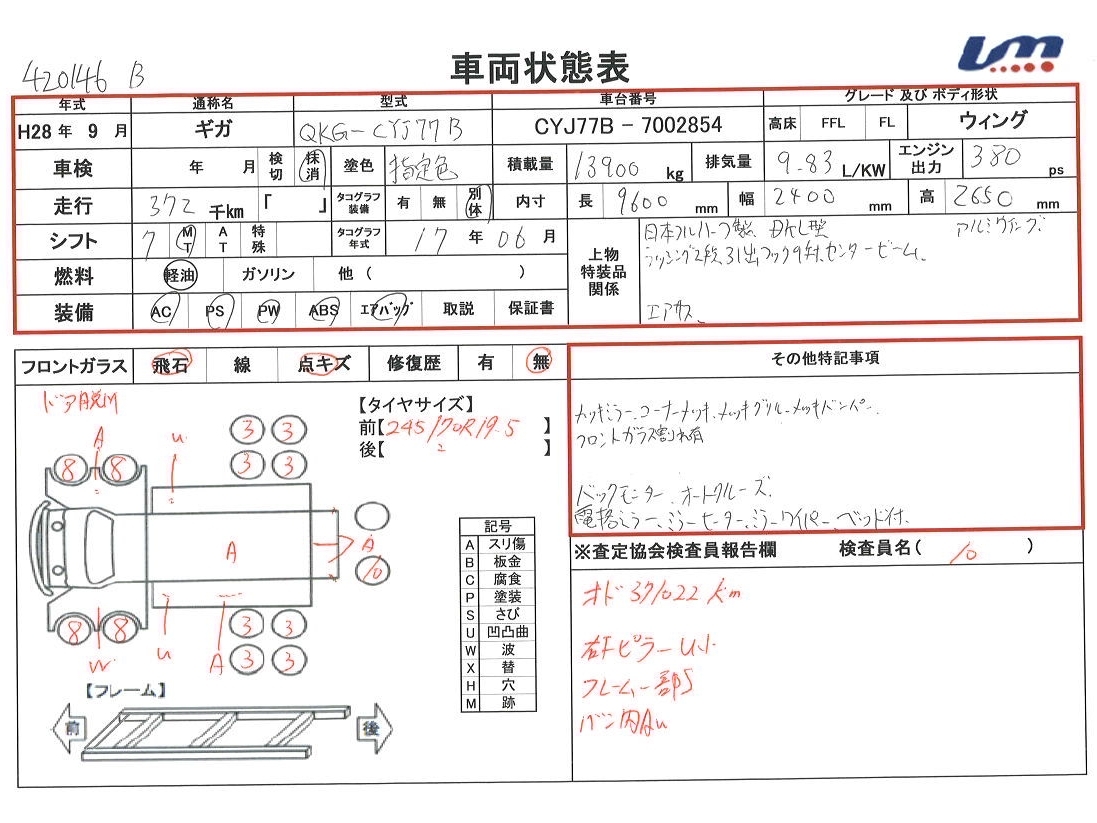 420146 B
車両状態表
UM
年式 通称名 型式 車台番号 グレード 及び ボディ形状
H28 年 9 月 ギガ QKG-CYJ77B CYJ77B - 7002854 高床 FFL FL ウィング
車検 年 月 検切 抹消 塗色 指定色 積載量 13900 kg 排気量 9.83 L/KW エンジン出力 380 ps
走行 372 千km 「 」 タコグラフ装備 有 無 別体 内寸 長 9600 mm 幅 2400 mm 高 2650 mm
シフト 7 MT AT 特殊 タコグラフ年式 17 年 06 月
上物特装品関係
日本フルハーフ製 アルミウィング.
ラッシング2段、引出フック9対、センタービーム、
エアサス、
燃料 軽油 ガソリン 他 ( )
装備 AC PS PW ABS エアバッグ 取説 保証書
フロントガラス 飛石 線 点キズ 修復歴 有 無
その他特記事項
メッキミラー、コーナーメッキ、メッキグリル、メッキバンパー、
フロントガラス割れ有
バックモニター、オートクルーズ、
電格ミラー、ミラーヒーター、ミラーワイパー、ベッド付、
【タイヤサイズ】
前【245/70R19.5 】
後【 〃 】
A u 3 3
8 8 3 3
A A 10
8 8 3 3
W u A 3 3
記号
A スリ傷
B 板金
C 腐食
P 塗装
S さび
U 凹凸曲
W 波
X 替
H 穴
M 跡
【フレーム】
前 後
※査定協会検査員報告欄 検査員名( 10 )
オド 371022 km
右Fピラー U小
フレーム一部S
バン内Au